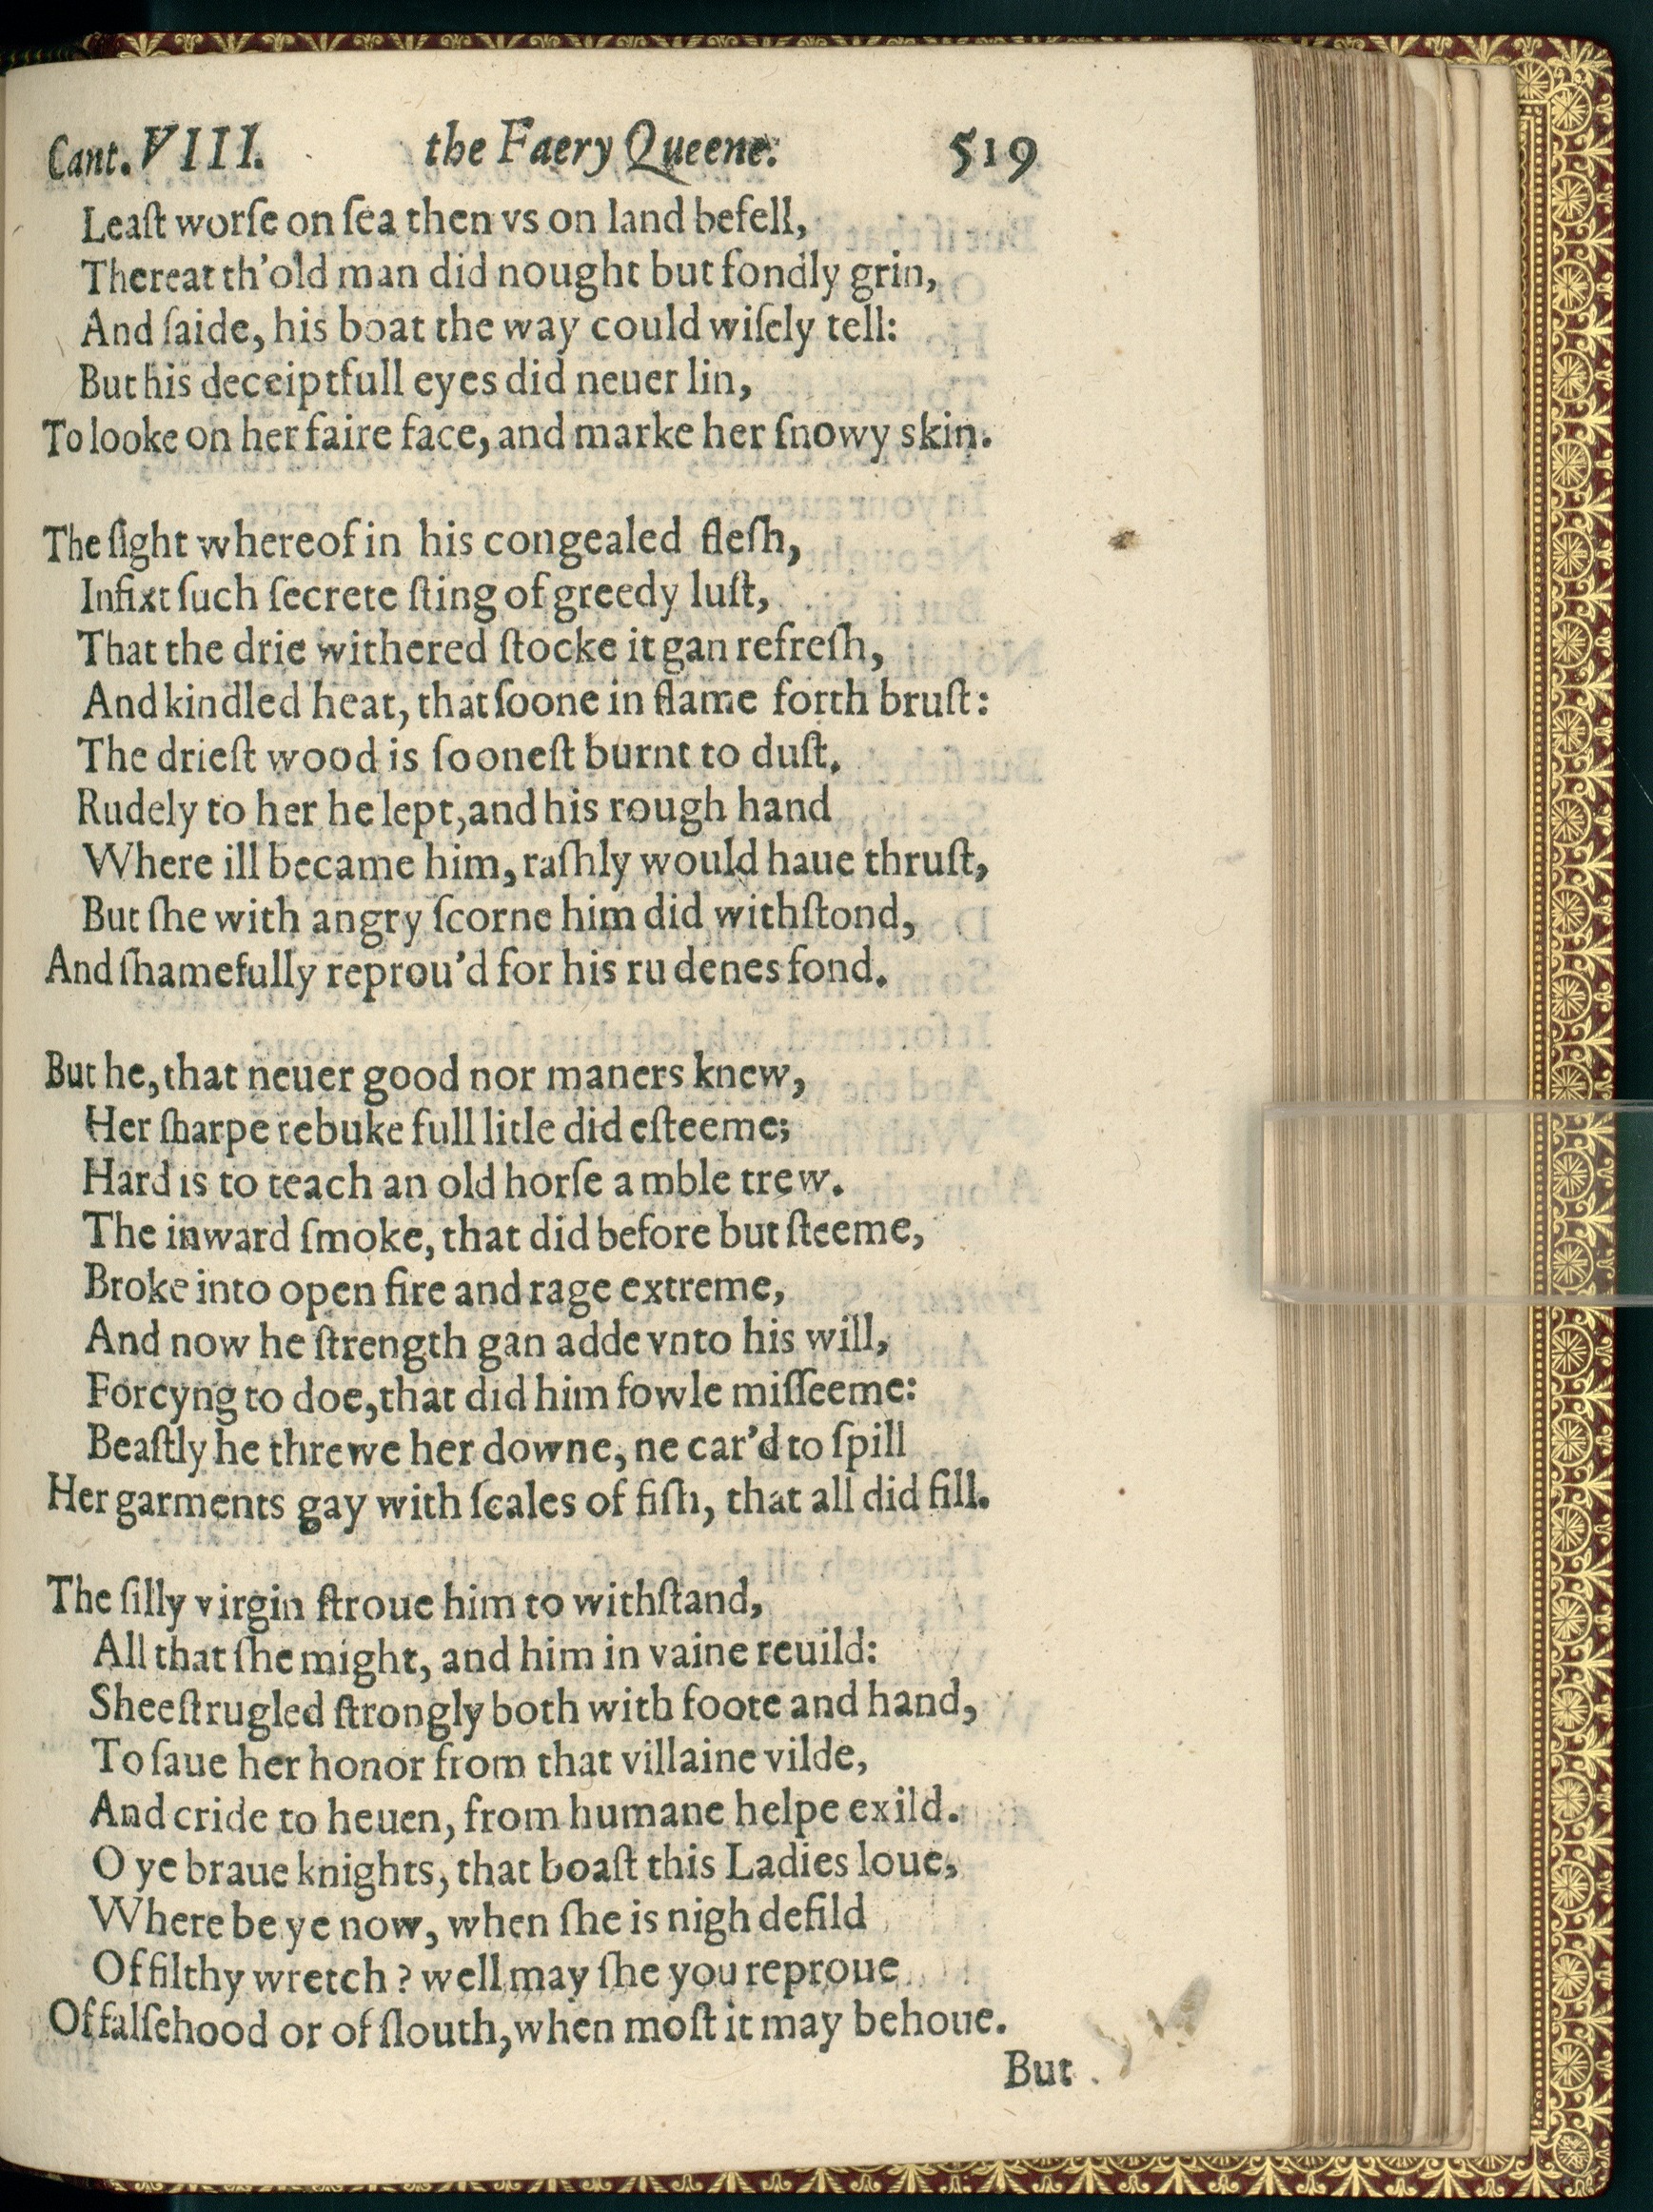 Cant. VIII. the Faery Queene. 519
Leaſt worſe on ſea then vs on land befell,
Thereat th'old man did nought but fondly grin,
And ſaide, his boat the way could wiſely tell:
But his deceiptfull eyes did neuer lin,
To looke on her faire face, and marke her ſnowy skin.
The ſight whereof in his congealed fleſh,
Infixt ſuch ſecrete ſting of greedy luſt,
That the drie withered ſtocke it gan refreſh,
And kindled heat, that ſoone in flame forth bruſt:
The drieſt wood is ſooneſt burnt to duſt.
Rudely to her he lept, and his rough hand
Where ill became him, raſhly would haue thruſt,
But ſhe with angry ſcorne him did withſtond,
And ſhamefully reprou'd for his rudenes fond.
But he, that neuer good nor maners knew,
Her ſharpe rebuke full litle did eſteeme;
Hard is to teach an old horſe amble trew.
The inward ſmoke, that did before but ſteeme,
Broke into open fire and rage extreme,
And now he ſtrength gan adde vnto his will,
Forcyng to doe, that did him fowle miſſeeme:
Beaſtly he threwe her downe, ne car'd to ſpill
Her garments gay with ſcales of fiſh, that all did fill.
The ſilly virgin ſtroue him to withſtand,
All that ſhe might, and him in vaine reuild:
Shee ſtrugled ſtrongly both with foote and hand,
To ſaue her honor from that villaine vilde,
And cride to heuen, from humane helpe exild.
O ye braue knights, that boaſt this Ladies loue,
Where be ye now, when ſhe is nigh defild
Of filthy wretch? well may ſhe you reproue
Of falſehood or of ſlouth, when moſt it may behoue.
But